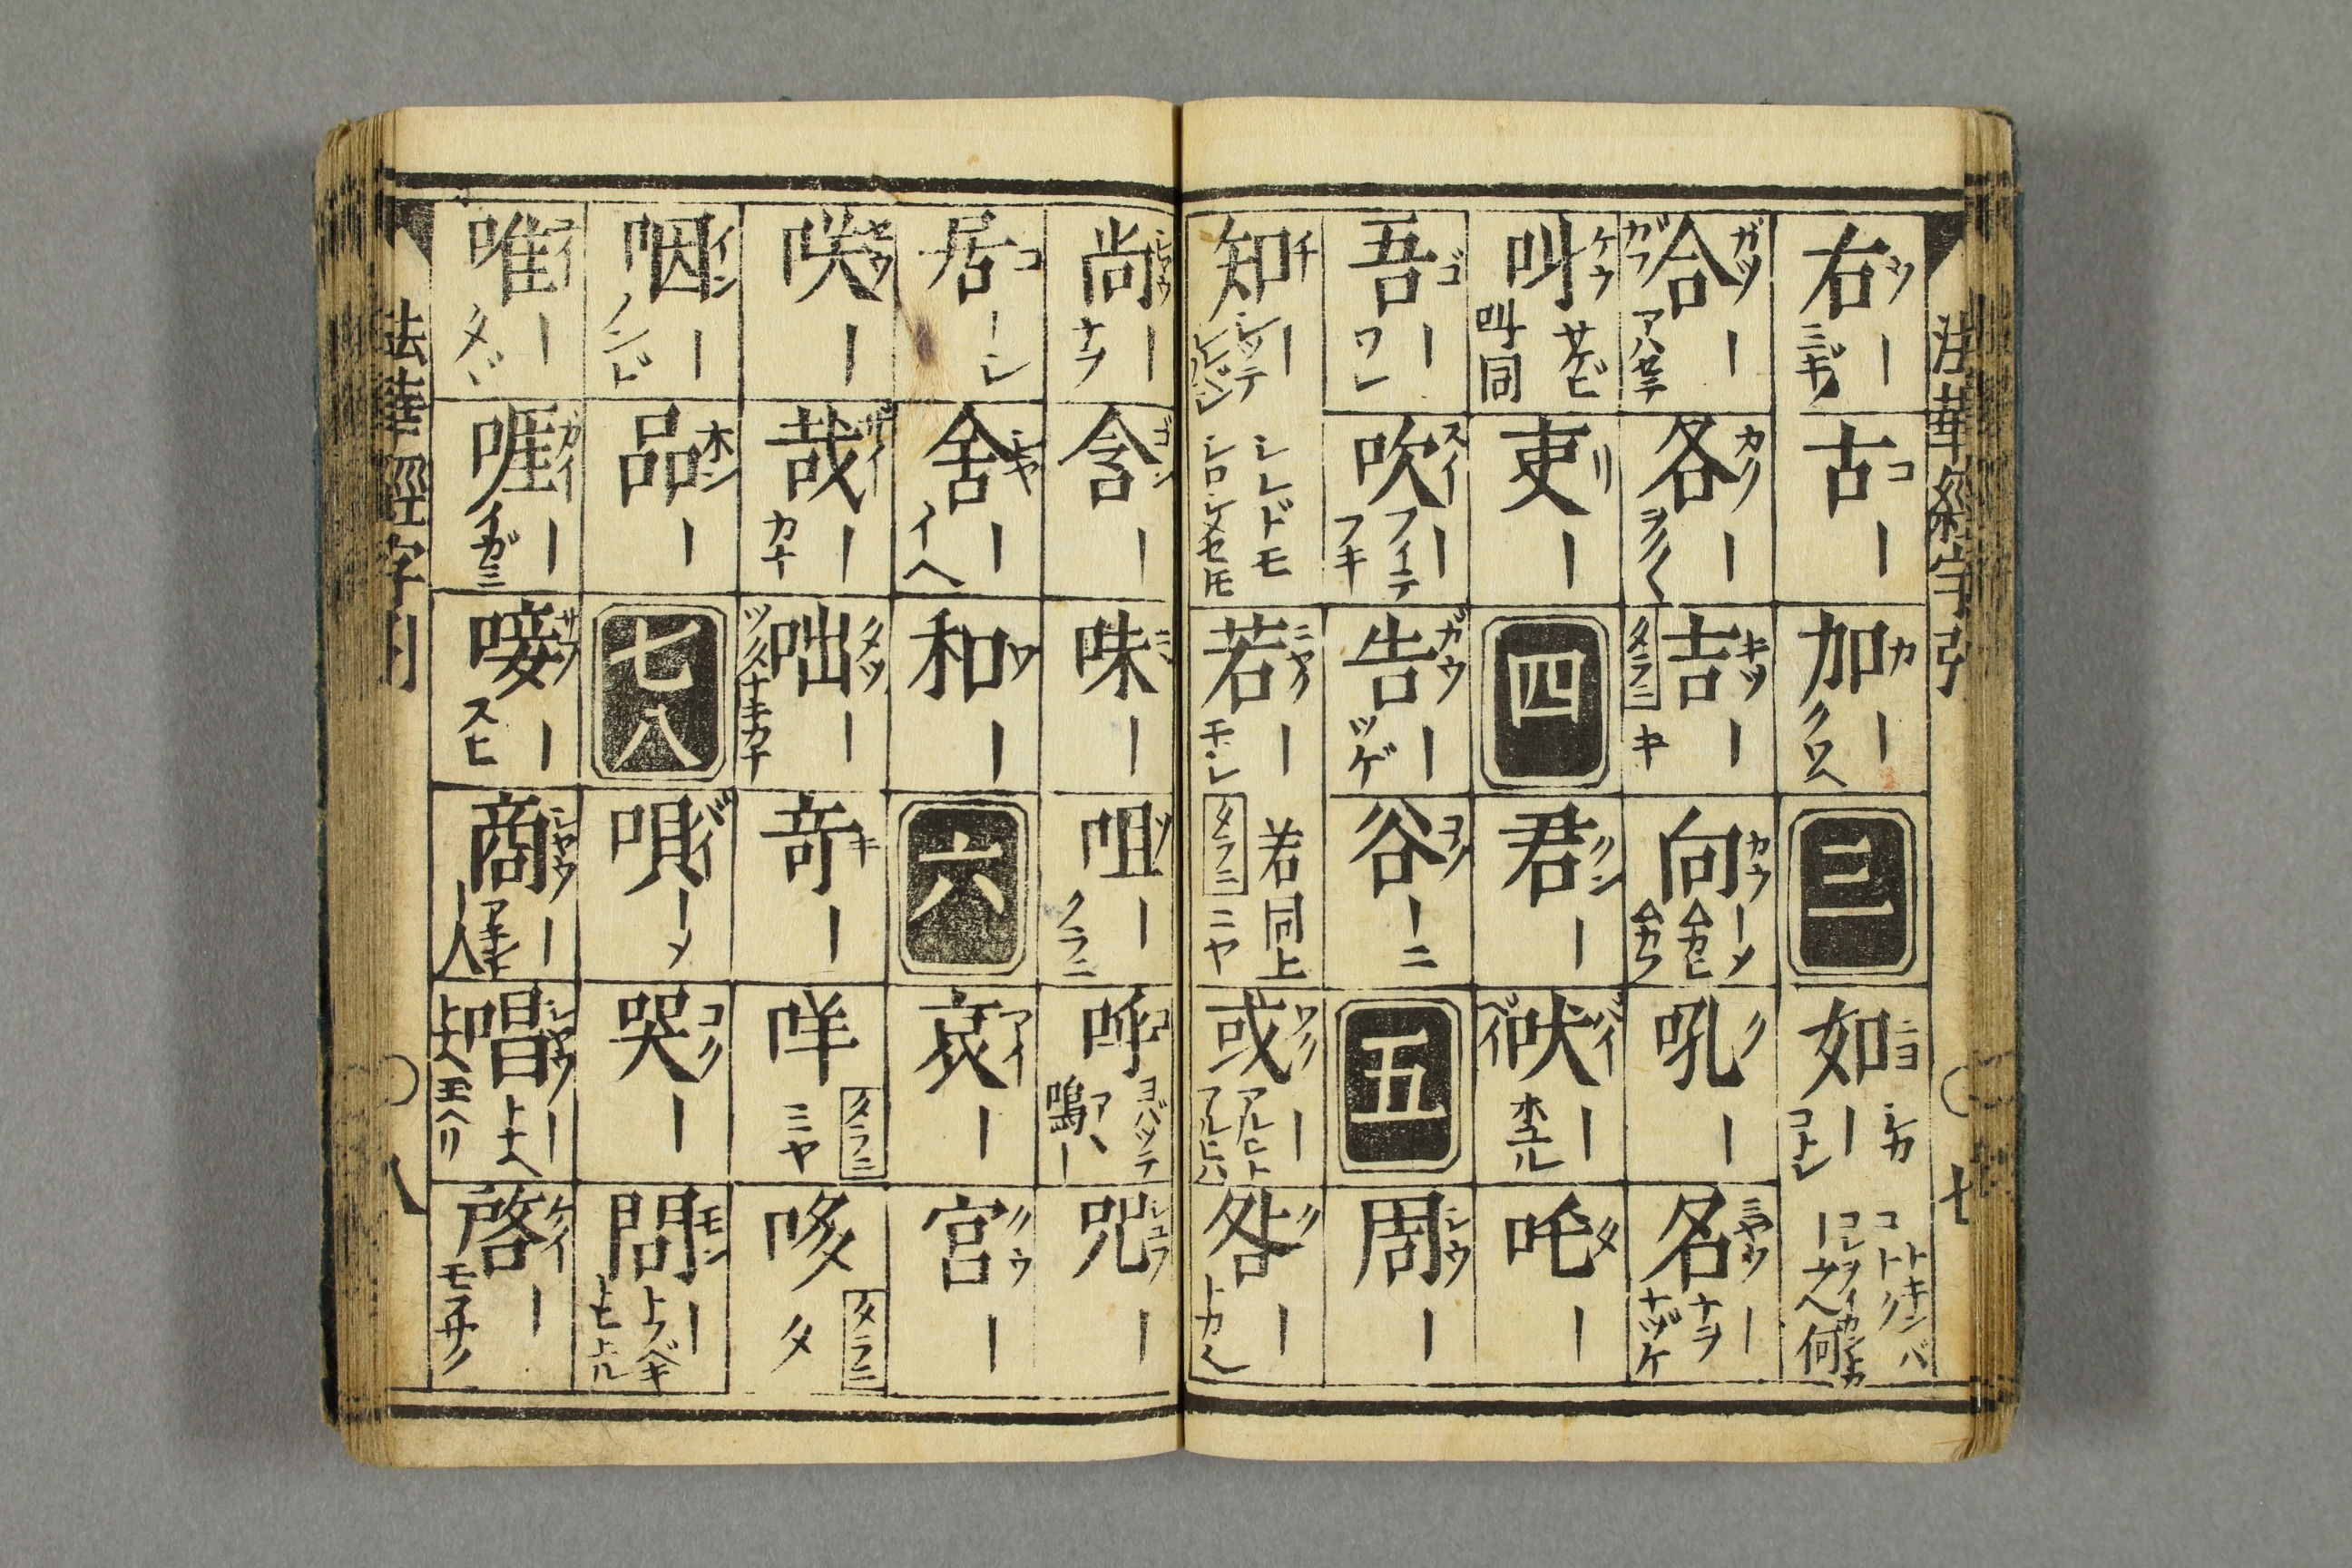 法華經字引
七
右 ウ ー ミギリ
古 コ ー
加 カ ー クワヘ
三
如 ニヨ ー シカ コトシ コトトキンバ コレヲイカンとカ ーウヘ何
合 ガツ ガフ ー アハセテ
各 カク ー ヲノく
吉 キツ ー タラニ キ
向 カウ ーメ ムカヒ ムカツ
吼 ク ー
名 ミヤウ ー ナヲ ナヅケ
叫 ケウ サケビ 叫同
吏 リ ー
四
君 クン ー
吠 バイ ベイ ー ホユル
吒 タ ー
吾 ゴ ー ワレ
吹 スイ ー フイテ フキ
告 ガウ ー ツゲ
谷 ヨク ーニ
五
周 シウ ー
知 チ ー シツテ シレドモ シロシケメセトモ
若 ニヤク ー モシ 若同上 タラニ ニヤ
或 ワク ー アルヒト アルヒハ
咎 ク ー トカへ
尚 シヤウ ー ナヲ
含 ゴン ー
味 ミ ー
咀 ソ ー クラニ
呼 コ ヨバツテ アヽ 嗚ー
咒 シユウ ー
居 コ ーシ
舍 シヤ ー イヘ
和 ワ ー
六
哀 アイ ー
宮 クウ ー
咲 セウ ー
哉 サイ ー カナ
咄 タツ ー ツタナキカナ
奇 キ ー
咩 タラニ ミヤ
哆 タラニ タ
咽 イン ー ノンド
品 ホン ー
七八
唄 バイ ーメ
哭 コク ー
問 モン ー トフベキ トヒトル
唯 ユイ ー タヾ
啀 ガイ ー イガミ
唼 サフ ー スヒ
商 シヤウ ー アキヒト ー人
唱 シヤウ ー トナヘ トナヘ玉ヘリ
啓 ケイ ー モフサク
法華經字引
八